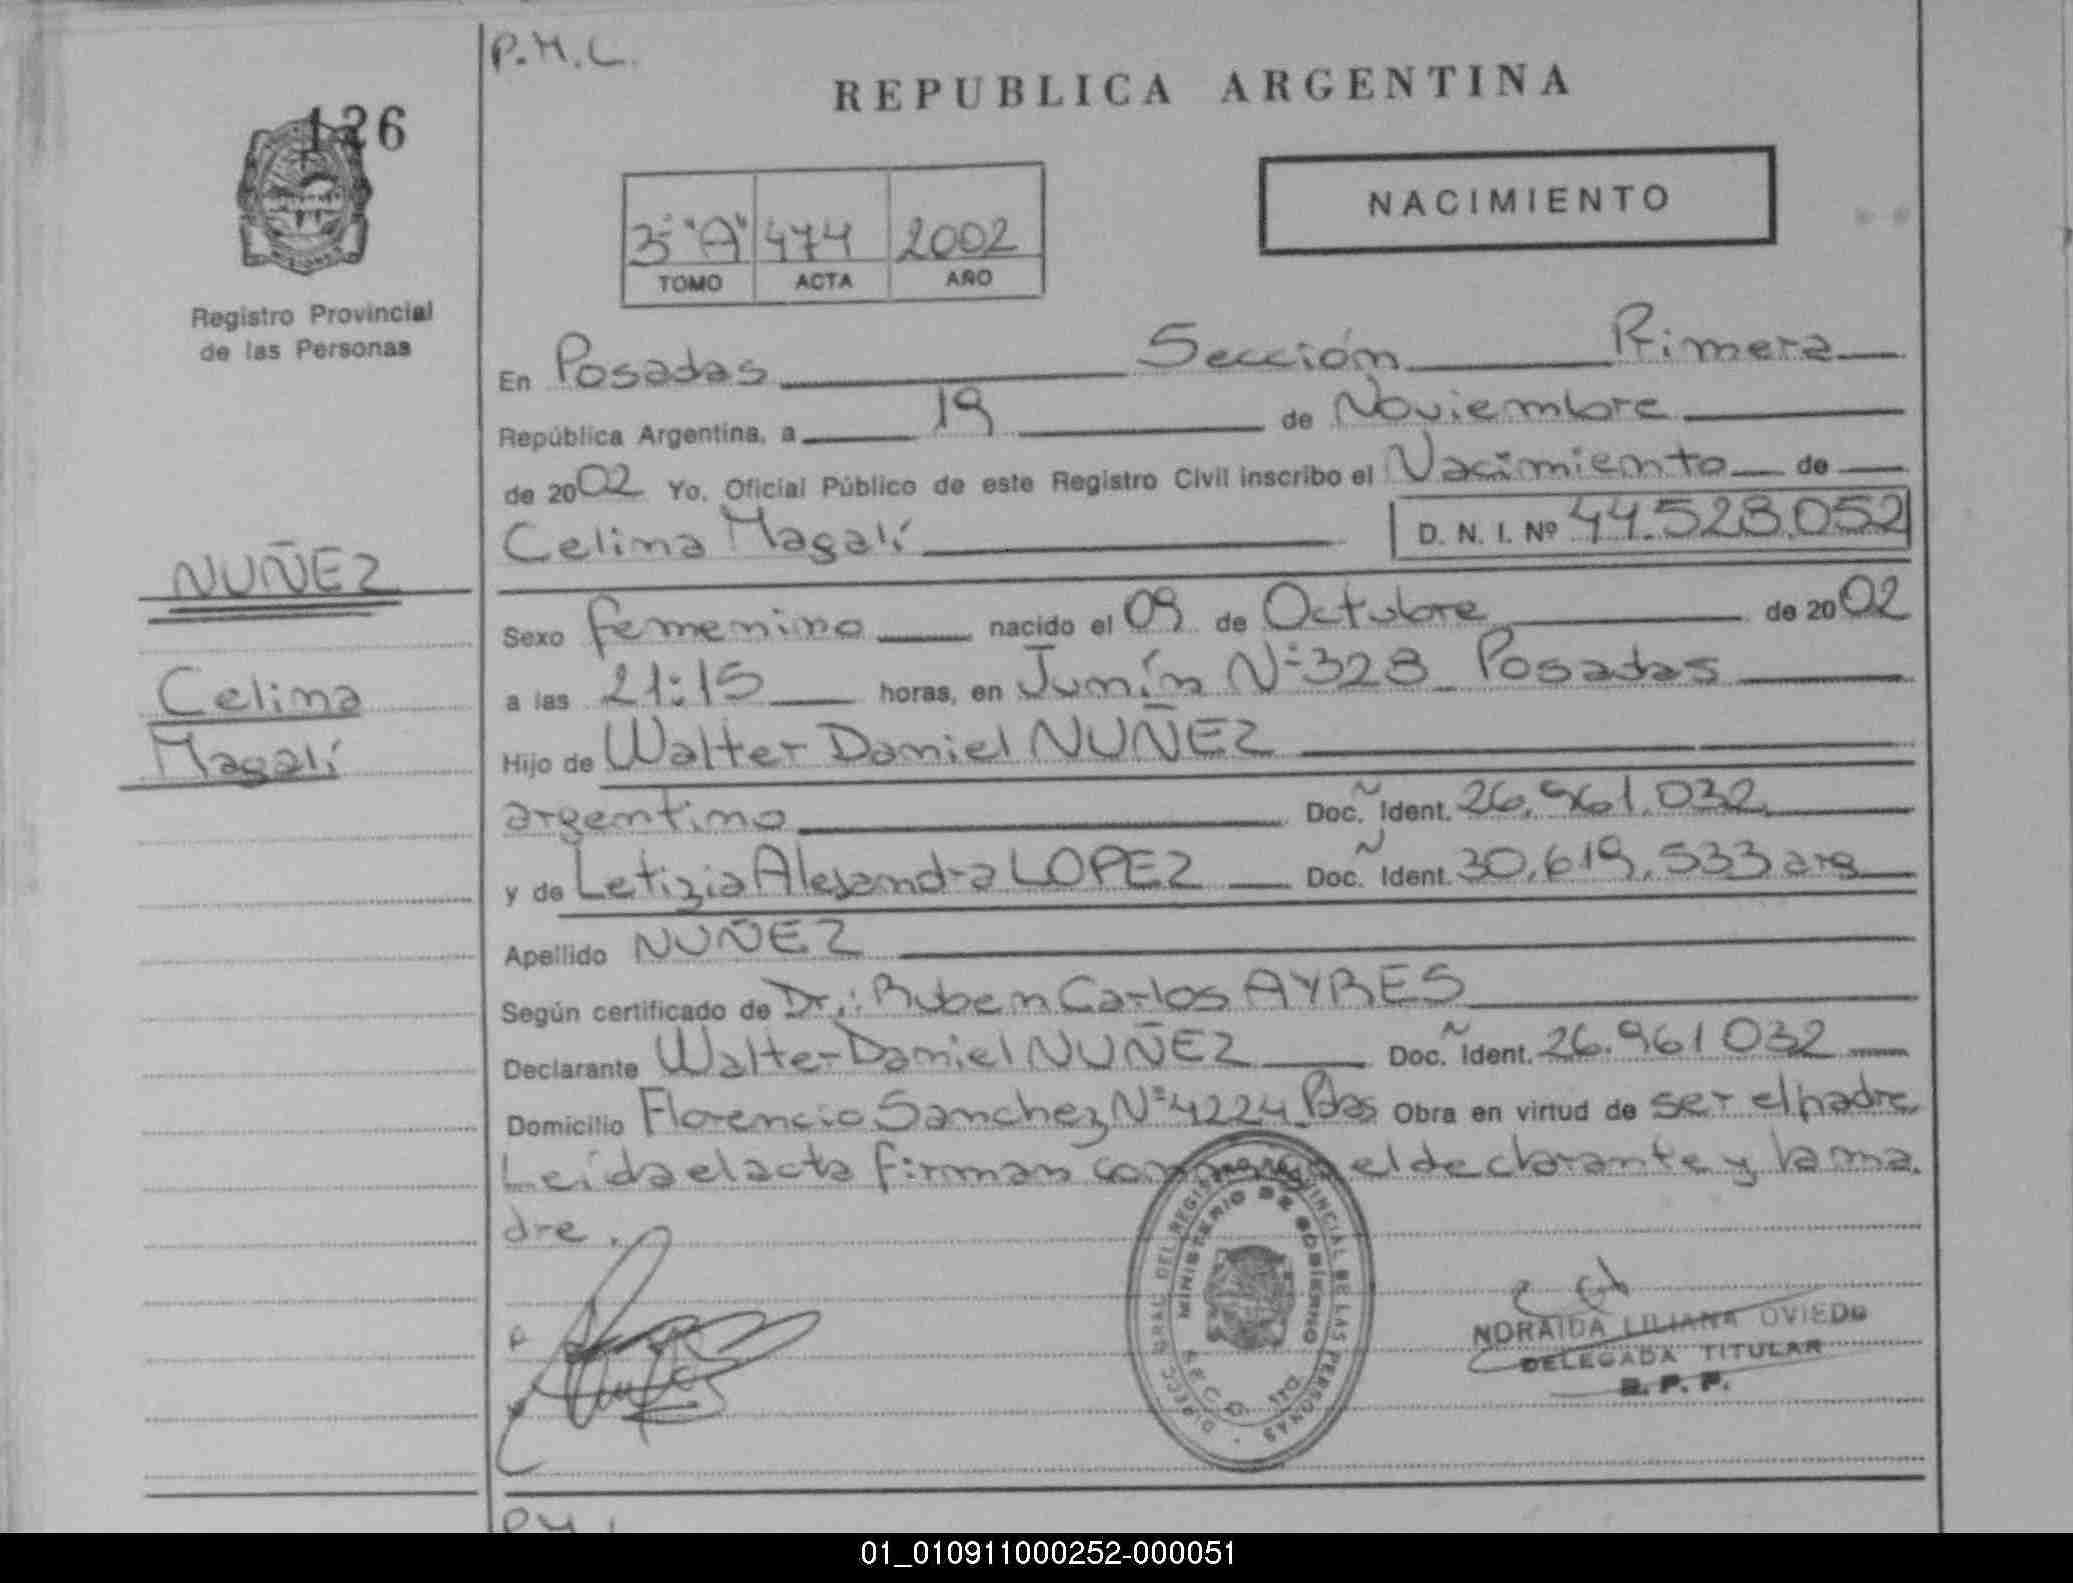 P.M.L.
REPUBLICA ARGENTINA
126
NACIMIENTO
3º "A" 474 2002
TOMO ACTA AÑO
Registro Provincial
de las Personas
En Posadas Sección Primera
República Argentina, a 19 de Noviembre
de 2002 Yo, Oficial Público de este Registro Civil inscribo el Nacimiento de
Celina Magalí D. N. I. Nº 44.528.052
NUÑEZ
Celina
Magalí
Sexo femenino nacido el 09 de Octubre de 2002
a las 21:15 horas, en Junín Nº 328 Posadas
Hijo de Walter Daniel NUÑEZ
argentino Doc. Ident. 26.961.032
y de Letizia Alejandra LOPEZ Doc. Ident. 30.619.533 arg
Apellido NUÑEZ
Según certificado de Dr.: Ruben Carlos AYRES
Declarante Walter Daniel NUÑEZ Doc. Ident. 26.961032
Domicilio Florencio Sanchez Nº 4224 Pdas Obra en virtud de ser el padre.
Leída el acta firman conmigo el declarante y la ma
dre.
DIREC. GRAL. DEL REGISTRO PROVINCIAL DE LAS PERSONAS
MINISTERIO DE GOBIERNO
NORAIDA LILIANA OVIEDO
DELEGADA TITULAR
R. P. P.
01_010911000252-000051